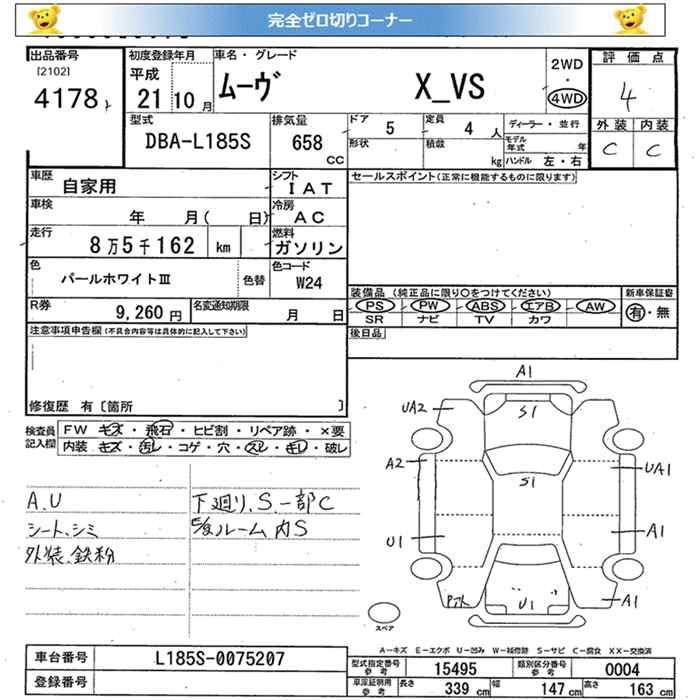 完全ゼロ切りコーナー
出品番号
[2102]
4178
初度登録年月
平成
21年10月
車名・グレード
ムーヴ X_VS
2WD
・
4WD
評価点
4
外装 内装
C C
型式
DBA-L185S
排気量
658
CC
ドア 5
形状
定員 4 人
積載 kg
ディーラー・並行
モデル年式 年
ハンドル 左・右
車歴
自家用
シフト
IAT
セールスポイント(正常に機能するものに限ります)
車検
年 月( 日)
冷房
AC
走行
8万5千162 km
燃料
ガソリン
色
パールホワイトⅢ
色替
色コード
W24
装備品(純正品に限り○をつけてください)
PS PW ABS エアB AW
SR ナビ TV カワ
新車保証書
有・無
R券
9,260円
名変通知期限
月 日
後日品
注意事項申告欄(不具合内容等は具体的に記入して下さい)
修復歴 有〔箇所 〕
検査員
記入欄
FW キズ・飛石・ヒビ割・リペア跡・×要
内装 キズ・汚レ・コゲ・穴・スレ・キレ・破レ
A.U
シート、シミ
外装、鉄粉
下廻り、S.一部C
ルーム内S
A1
UA2
S1
A2
S1
UA1
U1
A1
U1
A1
スペア
A－キズ E－エクボ U－凹み W－補修跡 S－サビ C－腐食 XX－交換済
車台番号
L185S-0075207
登録番号
型式指定番号
参考
15495
類別区分番号
参考
0004
車庫証明用
参考
長さ 339 cm 幅 147 cm 高さ 163 cm